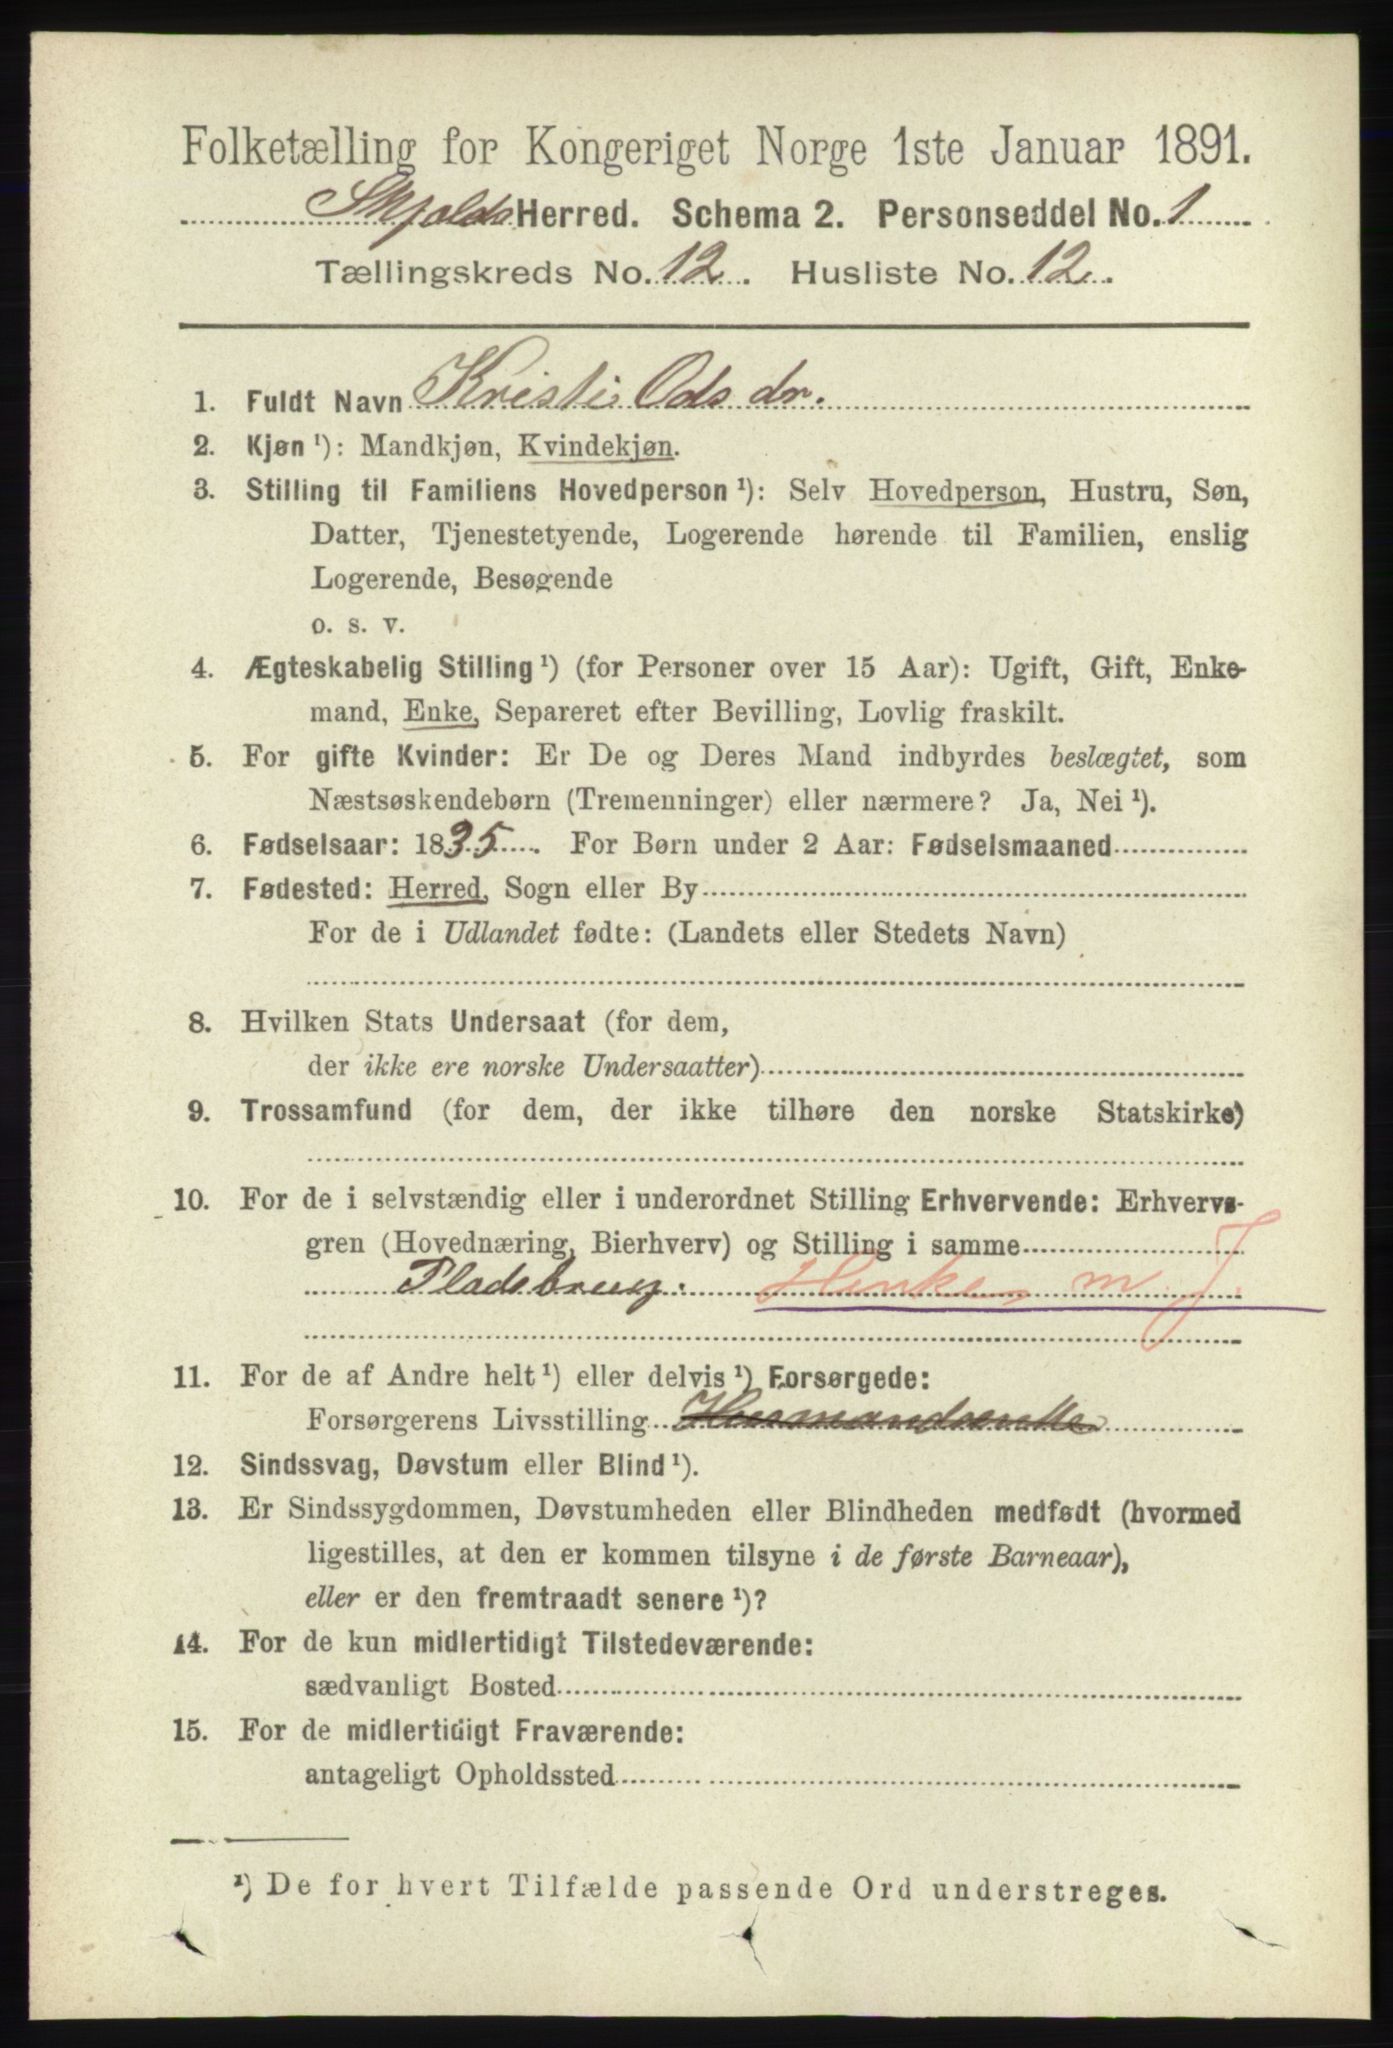 Folketælling for Kongeriget Norge 1ste Januar 1891.
Skjolds Herred. Schema 2. Personseddel No. 1
Tællingskreds No. 12. Husliste No. 12.
1. Fuldt Navn Kristi Ods dr.
2. Kjøn ¹): Mandkjøn, Kvindekjøn.
3. Stilling til Familiens Hovedperson ¹): Selv Hovedperson, Hustru, Søn,
Datter, Tjenestetyende, Logerende hørende til Familien, enslig
Logerende, Besøgende
o. s. v.
4. Ægteskabelig Stilling ¹) (for Personer over 15 Aar): Ugift, Gift, Enke-
mand, Enke, Separeret efter Bevilling, Lovlig fraskilt.
5. For gifte Kvinder: Er De og Deres Mand indbyrdes beslægtet, som
Næstsøskendebørn (Tremenninger) eller nærmere? Ja, Nei ¹).
6. Fødselsaar: 1835. For Børn under 2 Aar: Fødselsmaaned
7. Fødested: Herred, Sogn eller By
For de i Udlandet fødte: (Landets eller Stedets Navn)
8. Hvilken Stats Undersaat (for dem,
der ikke ere norske Undersaatter)
9. Trossamfund (for dem, der ikke tilhøre den norske Statskirke)
10. For de i selvstændig eller i underordnet Stilling Erhvervende: Erhvervs-
gren (Hovednæring, Bierhverv) og Stilling i samme
Pladsbrug. m. J.
11. For de af Andre helt ¹) eller delvis ¹) Forsørgede:
Forsørgerens Livsstilling
12. Sindssvag, Døvstum eller Blind ¹).
13. Er Sindssygdommen, Døvstumheden eller Blindheden medfødt (hvormed
ligestilles, at den er kommen tilsyne i de første Barneaar),
eller er den fremtraadt senere ¹)?
14. For de kun midlertidigt Tilstedeværende:
sædvanligt Bosted
15. For de midlertidigt Fraværende:
antageligt Opholdssted
¹) De for hvert Tilfælde passende Ord understreges.